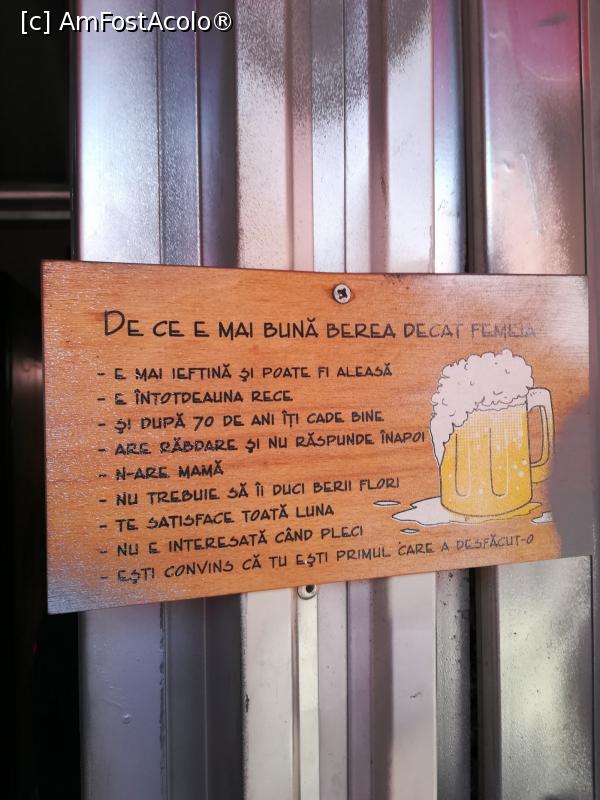 [c] AmFostAcolo®
DE CE E MAI BUNĂ BEREA DECAT FEMEIA
- E MAI IEFTINĂ ȘI POATE FI ALEASĂ
- E ÎNTOTDEAUNA RECE
- ȘI DUPĂ 70 DE ANI ÎȚI CADE BINE
- ARE RĂBDARE ȘI NU RĂSPUNDE ÎNAPOI
- N-ARE MAMĂ
- NU TREBUIE SĂ ÎI DUCI BERII FLORI
- TE SATISFACE TOATĂ LUNA
- NU E INTERESATĂ CÂND PLECI
- EȘTI CONVINS CĂ TU EȘTI PRIMUL CARE A DESFĂCUT-O